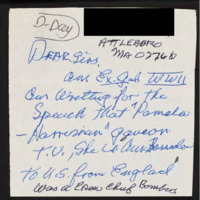 D-Day
ATTLEBORO
MA 02760
DEAR Sirs,
our Ex. G.I.s WWII
Our Writing for the
Speech that "Pamela
Harriman" gave on
T.V. She is Our
to U.S. from England"
Was a Crew Chief Bombers